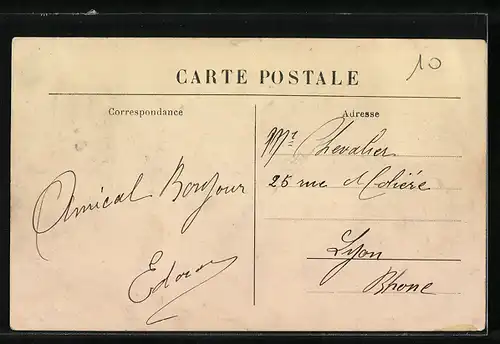 10
CARTE POSTALE
Correspondance
Adresse
Mr Chevalier
25 rue Molière
Lyon
Rhone
Amical Bonjour